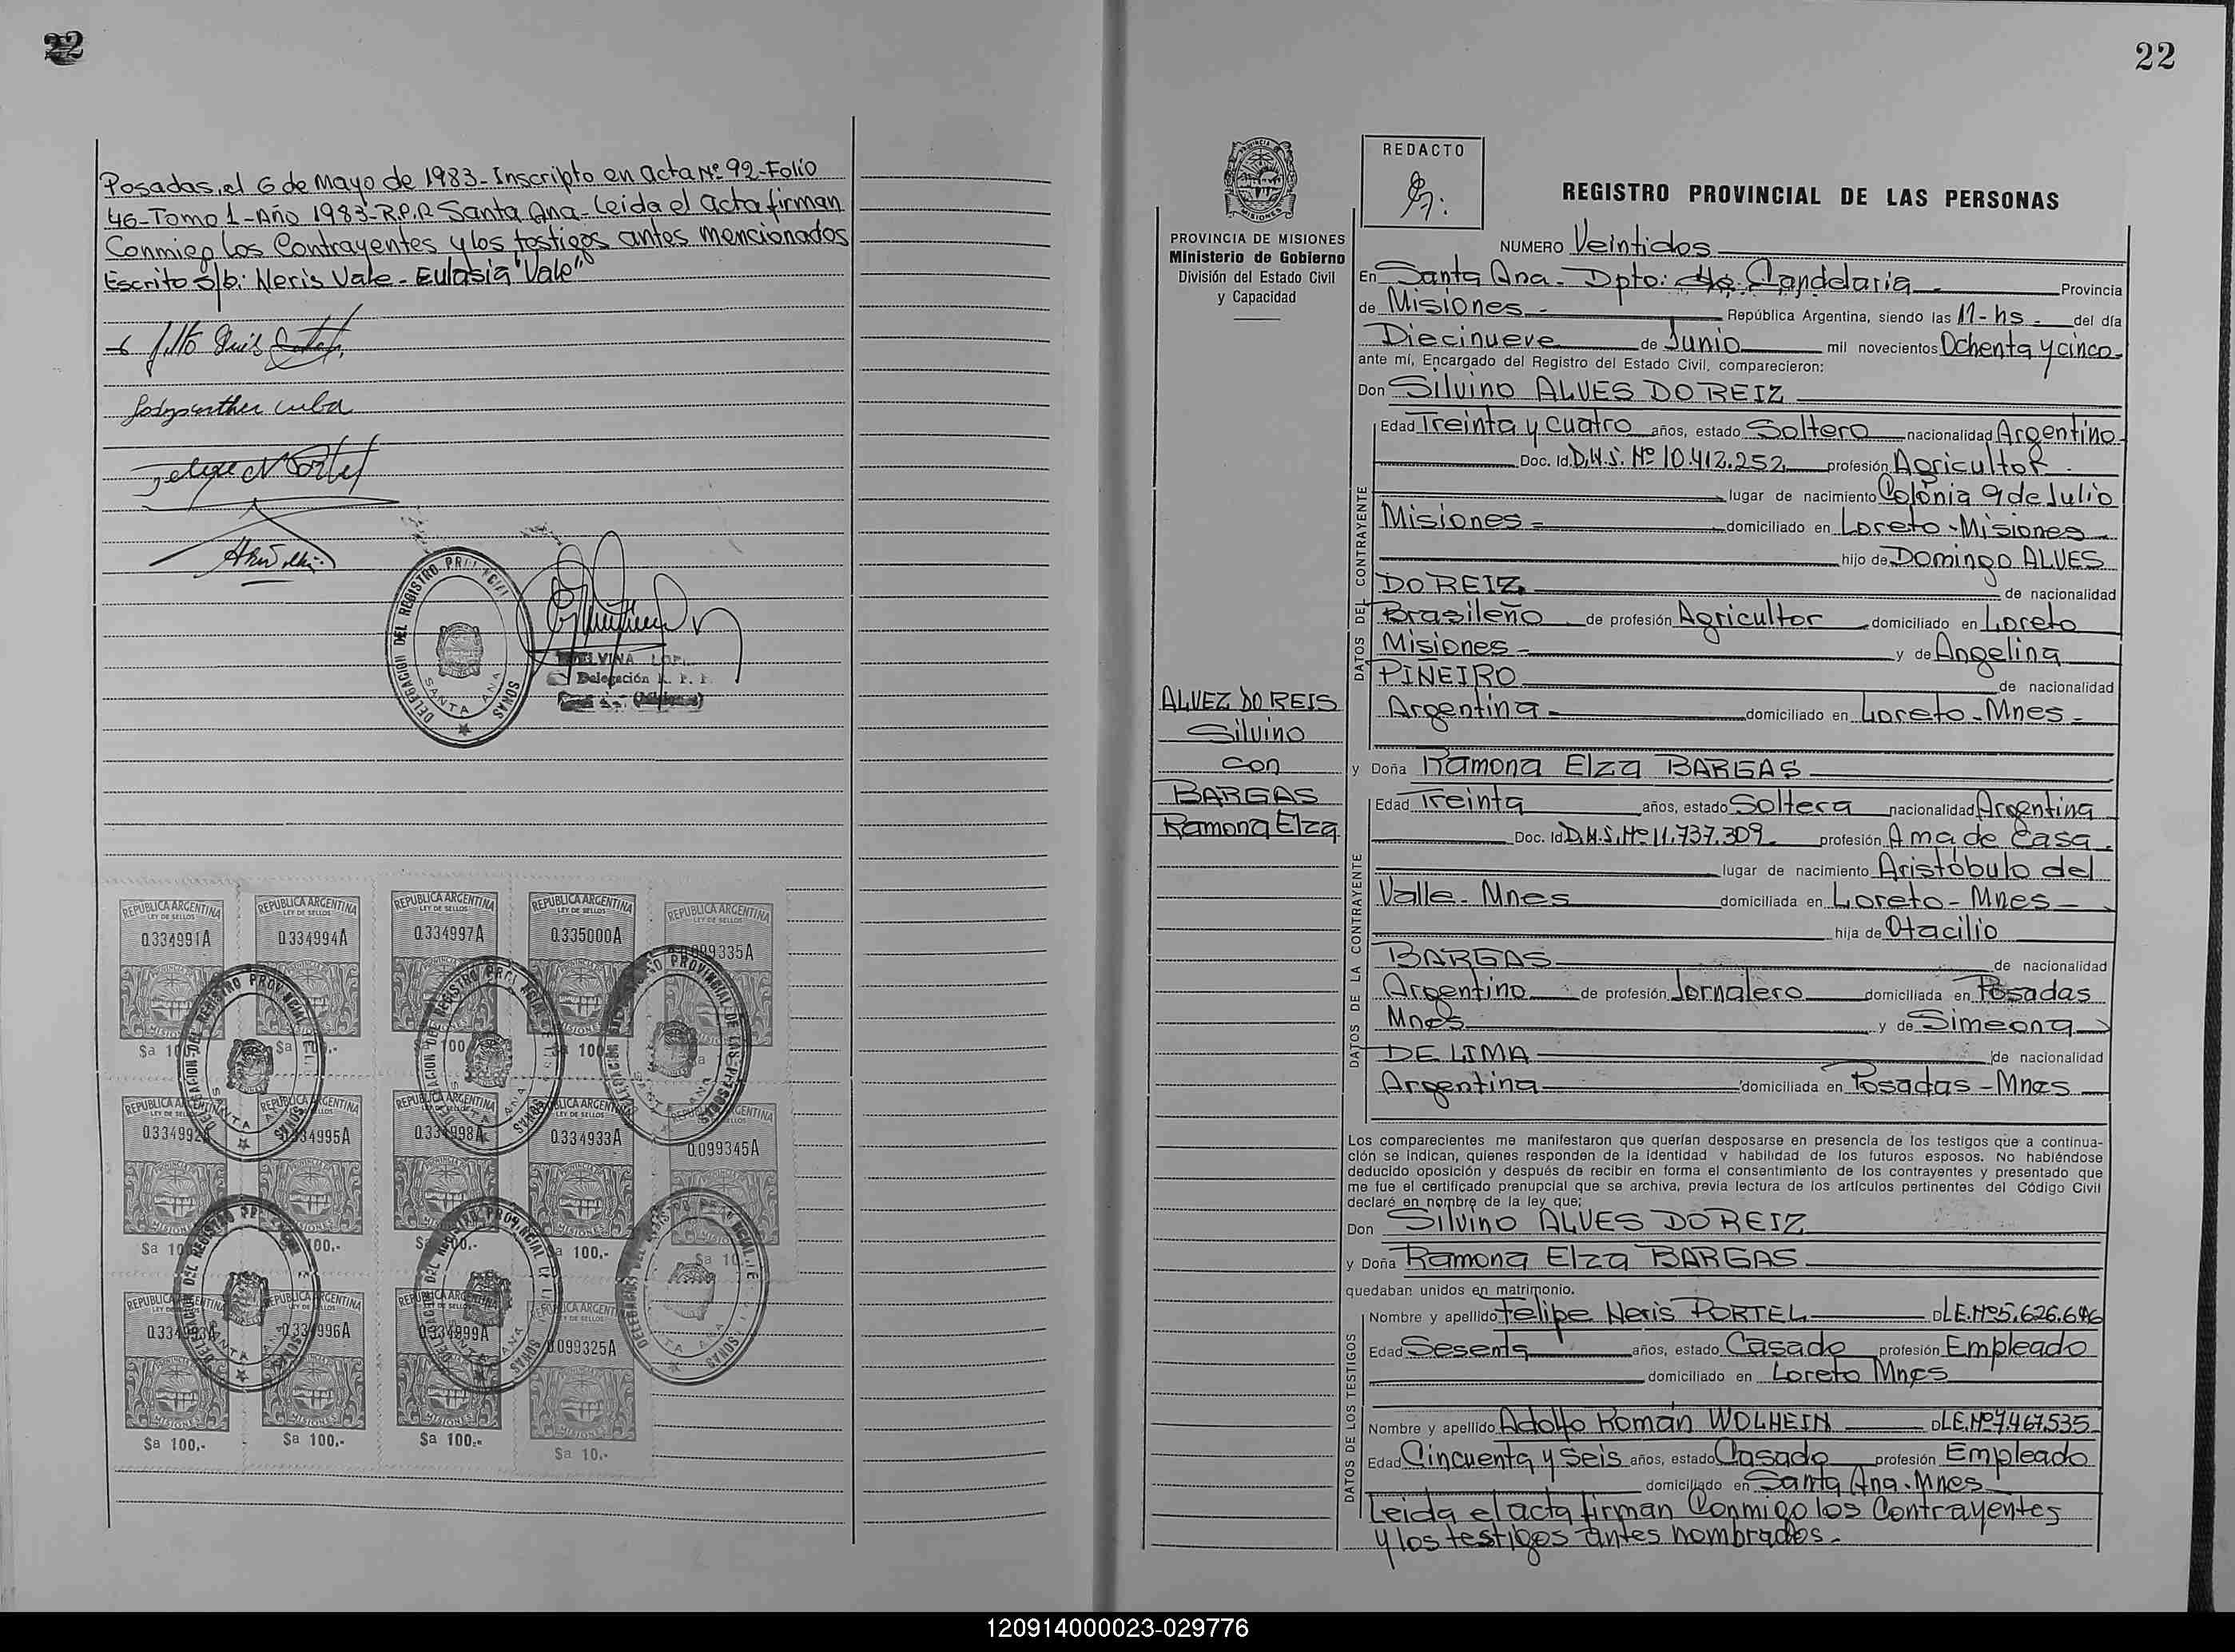 22
Posadas, el 6 de Mayo de 1983- Inscripto en acta Nº 92-Folio
46-Tomo 1-Año 1983-R.P.P. Santa Ana- Leida el acta firman
Conmigo los Contrayentes y los testigos antes mencionados
Escrito s/b: Neris Vale - Eulasia "Vale"
DELEGACION DEL REGISTRO PROVINCIAL DE LAS PERSONAS
SANTA ANA
Delegación R. P. P.
(Misiones)
REPUBLICA ARGENTINA
LEY DE SELLOS
0.334991A
REPUBLICA ARGENTINA
LEY DE SELLOS
0.334994A
REPUBLICA ARGENTINA
LEY DE SELLOS
0.334997A
REPUBLICA ARGENTINA
LEY DE SELLOS
0.335000A
REPUBLICA ARGENTINA
LEY DE SELLOS
REPUBLICA ARGENTINA
0.334995A
0.334998A
0.334933A
0.099345A
$a 100.-
0.334996A
0.334999A
0.099325A
MISIONES
$a 100.-
$a 100.-
$a 100.-
$a 10.-
22
PROVINCIA DE MISIONES
Ministerio de Gobierno
División del Estado Civil
y Capacidad
REDACTO
REGISTRO PROVINCIAL DE LAS PERSONAS
NUMERO Veintidos
En Santa Ana- Dpto: de Candelaria- Provincia
de Misiones- República Argentina, siendo las 11-hs- del día
Diecinueve de Junio mil novecientos Ochenta y cinco-
ante mí, Encargado del Registro del Estado Civil, comparecieron:
Don Silvino ALVES DO REIZ
DATOS DEL CONTRAYENTE
Edad Treinta y cuatro años, estado Soltero nacionalidad Argentino
Doc. Id. D.N.I. Nº 10.412.252 profesión Agricultor-
lugar de nacimiento Colonia 9 de Julio
Misiones- domiciliado en Loreto-Misiones
hijo de Domingo ALVES
DO REIZ de nacionalidad
Brasileño de profesión Agricultor domiciliado en Loreto
Misiones- y de Angelina
PIÑEIRO de nacionalidad
Argentina- domiciliado en Loreto-Mnes-
ALVEZ DO REIS
Silvino
con
BARGAS
Ramona Elza
y Doña Ramona Elza BARGAS
DATOS DE LA CONTRAYENTE
Edad Treinta años, estado Soltera nacionalidad Argentina
Doc. Id. D.N.I. Nº 11.737.309 profesión Ama de Casa.
lugar de nacimiento Aristóbulo del
Valle- Mnes domiciliada en Loreto-Mnes-
hija de Otacilio
BARGAS de nacionalidad
Argentino de profesión Jornalero domiciliada en Posadas
Mnes y de Simeona
DE LIMA de nacionalidad
Argentina domiciliada en Posadas-Mnes
Los comparecientes me manifestaron que querían desposarse en presencia de los testigos que a continua-
ción se indican, quienes responden de la identidad y habilidad de los futuros esposos. No habiéndose
deducido oposición y después de recibir en forma el consentimiento de los contrayentes y presentado que
me fue el certificado prenupcial que se archiva, previa lectura de los artículos pertinentes del Código Civil
declaré en nombre de la ley que:
Don Silvino ALVES DO REIZ
y Doña Ramona Elza BARGAS
quedaban unidos en matrimonio.
DATOS DE LOS TESTIGOS
Nombre y apellido Felipe Neris PORTEL D L.E. Nº 5.626.646
Edad Sesenta años, estado Casado profesión Empleado
domiciliado en Loreto Mnes
Nombre y apellido Adolfo Román WOLHEIN D L.E. Nº 7.467.535
Edad Cincuenta y Seis años, estado Casado profesión Empleado
domiciliado en Santa Ana-Mnes
Leida el acta firman Conmigo los Contrayentes
y los testigos antes nombrados-
120914000023-029776